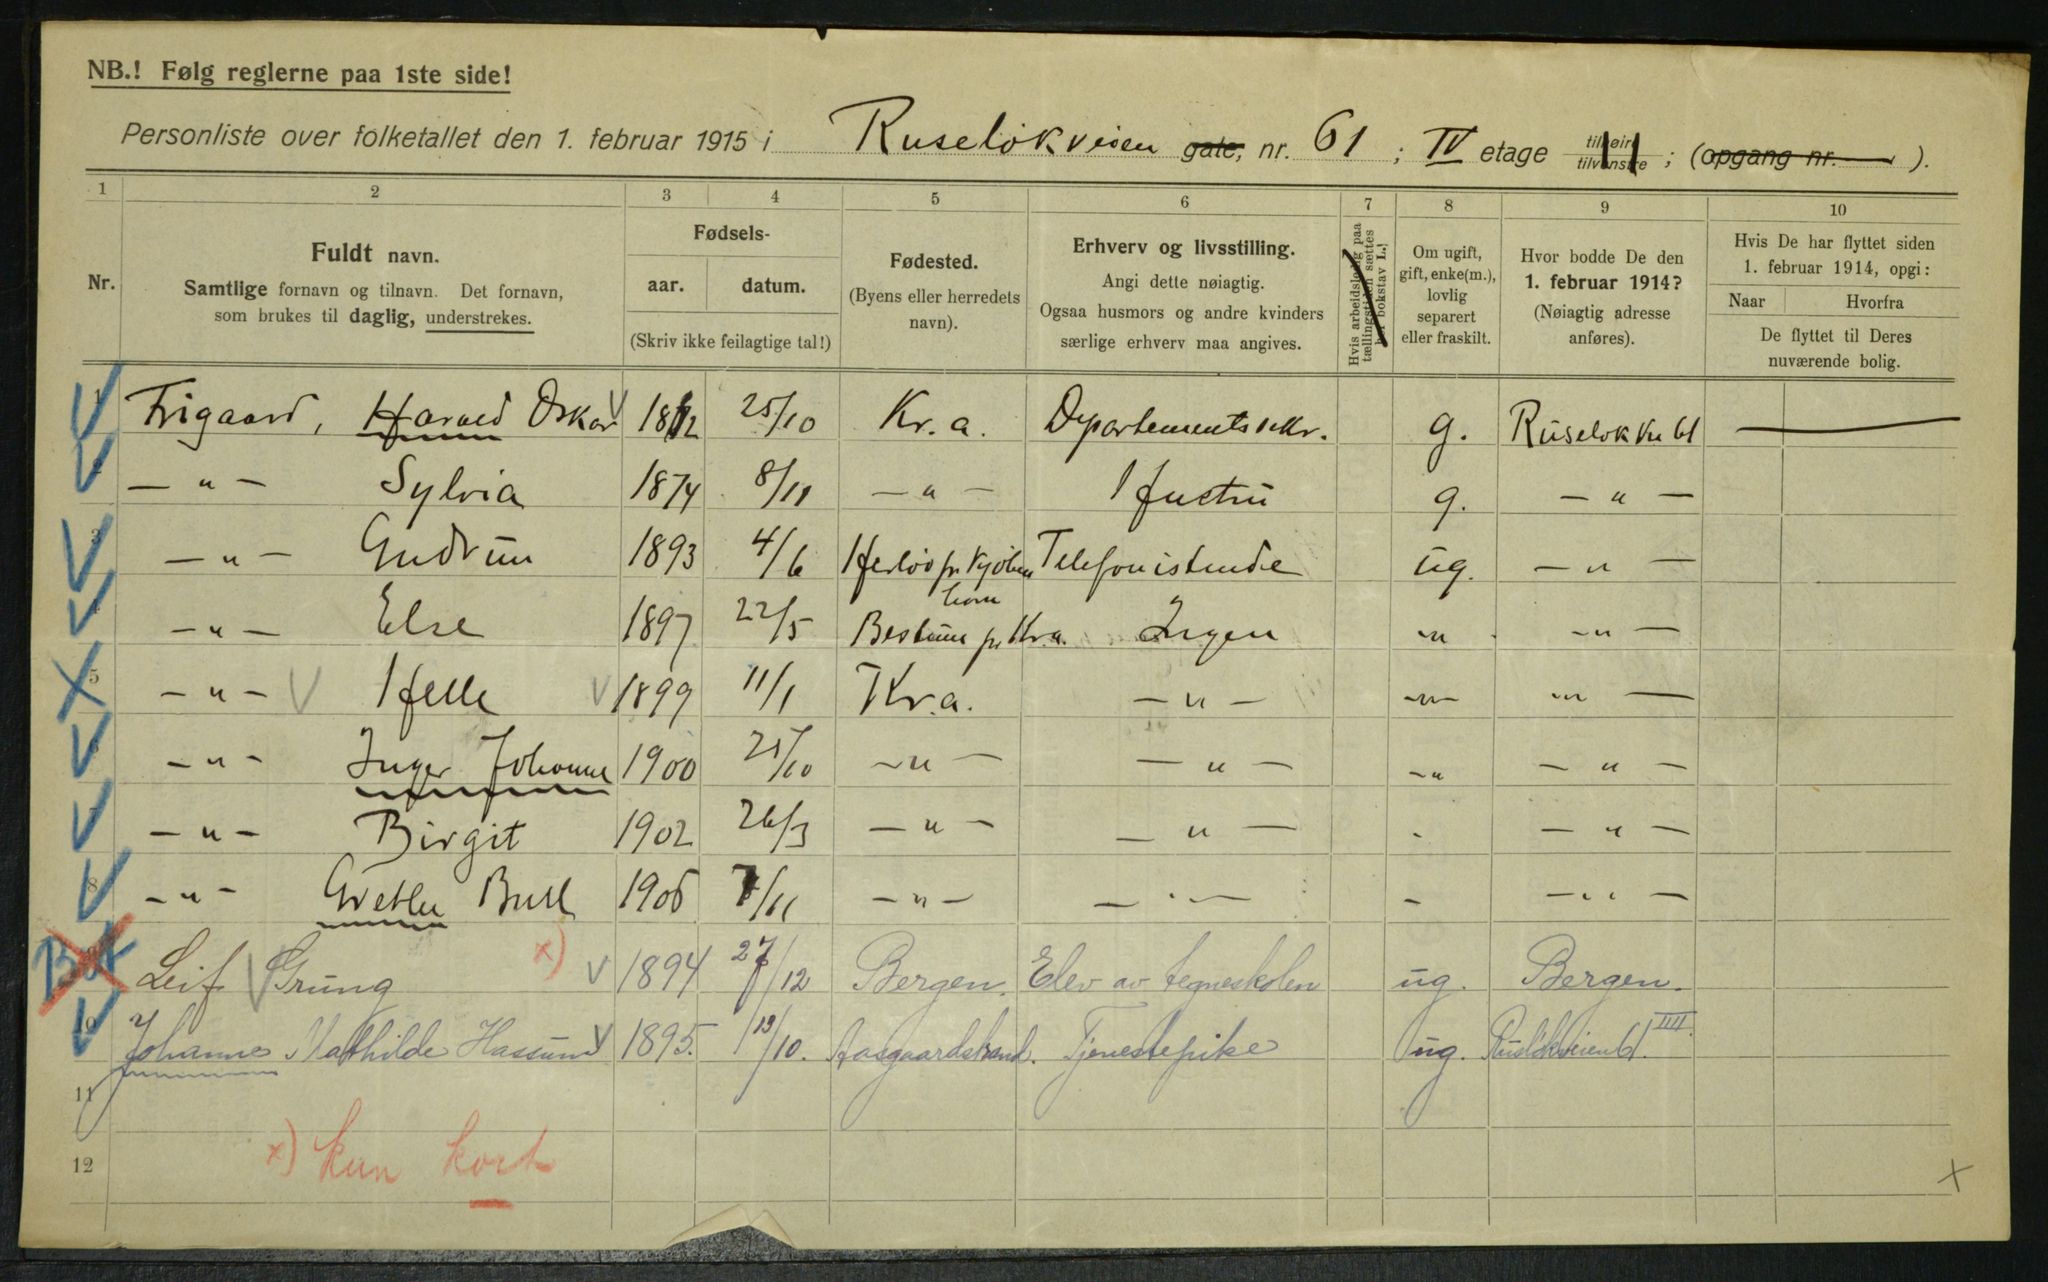 NB.! Følg reglerne paa 1ste side!
Personliste over folketallet den 1. februar 1915 i Ruseløkveien gate, nr. 61 ; IV etage tilhøire tilvenstre ; (opgang nr. ).
1 2 3 4 5 6 7 8 9 10
Nr.
Fuldt navn.
Samtlige fornavn og tilnavn. Det fornavn,
som brukes til daglig, understrekes.
Fødsels-
aar. datum.
(Skriv ikke feilagtige tal!)
Fødested.
(Byens eller herredets
navn).
Erhverv og livsstilling.
Angi dette nøiagtig.
Ogsaa husmors og andre kvinders
særlige erhverv maa angives.
Hvis arbeidsledig paa
tællingstiden sættes
her bokstav L.!
Om ugift,
gift, enke(m.),
lovlig
separert
eller fraskilt.
Hvor bodde De den
1. februar 1914?
(Nøiagtig adresse
anføres).
Hvis De har flyttet siden
1. februar 1914, opgi:
Naar Hvorfra
De flyttet til Deres
nuværende bolig.
1 Frigaard, Harald Oskar 1872 25/10 Kr.a. Departementssekr. g. Ruseløkkv 61 —
2 — " — Sylvia 1874 8/11 — " — Hustru g. — " —
3 — " — Gudrun 1893 4/6 Herløv pr Kjøben Telefonistinde ug. — " —
havn
4 — " — Else 1897 22/5 Bestum pr Kr.a. Ingen — " — " —
5 — " — Helle 1899 11/1 Kr.a. — " — — " — — " —
6 — " — Inger Johanne 1900 25/10 — " — — " — — " — " —
7 — " — Birgit 1902 26/3 — " — — " — - — " —
8 — " — Grethe Bull 1906 7/11 — " — — " — - — " —
9 Leif Grung x) 1894 27/12 Bergen. Elev av tegneskolen ug. Bergen.
10 Johanne Mathilde Hassum 1895. 13/10. Aasgaardstrand. Tjenestepike ug. Rusløkveien 61. IIII
11
x) kun kort
12
x